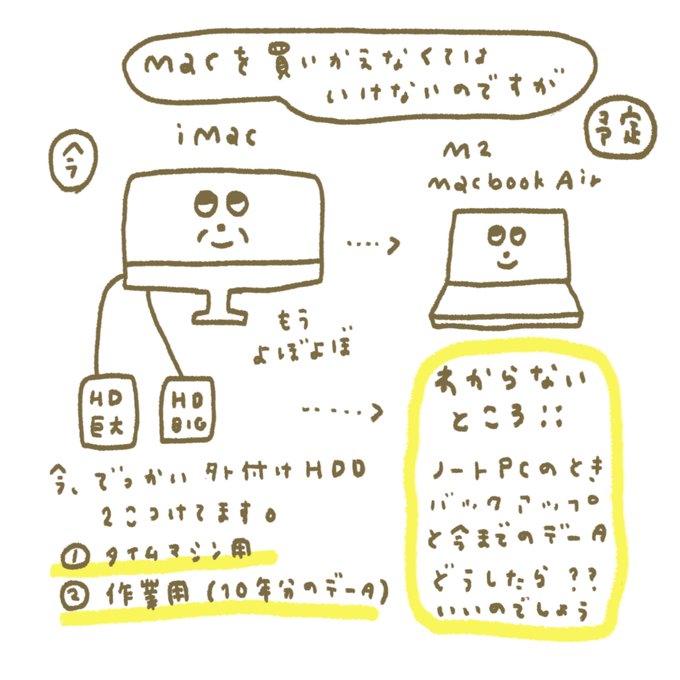 macを買いかえなくては
いけないのですが
今
iMac
予定
M2
macbook Air
もう
よぼよぼ
HD
巨大
HD
BIG
今、でっかい外付けHDD
2こつけてます。
① タイムマシン用
② 作業用(10年分のデータ)
わからない
ところ::
ノートPCのとき
バックアップ
と今までのデータ
どうしたら??
いいのでしょう